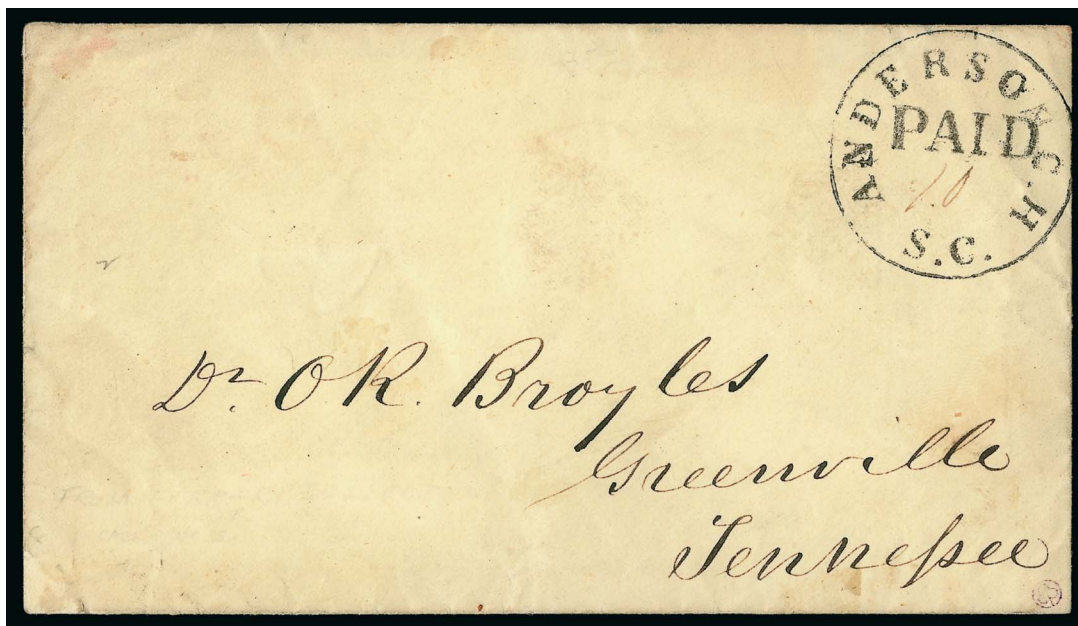 ANDERSON C.H.
PAID
10
S.C.
Dr. O R. Broyles
Greenville
Tennessee